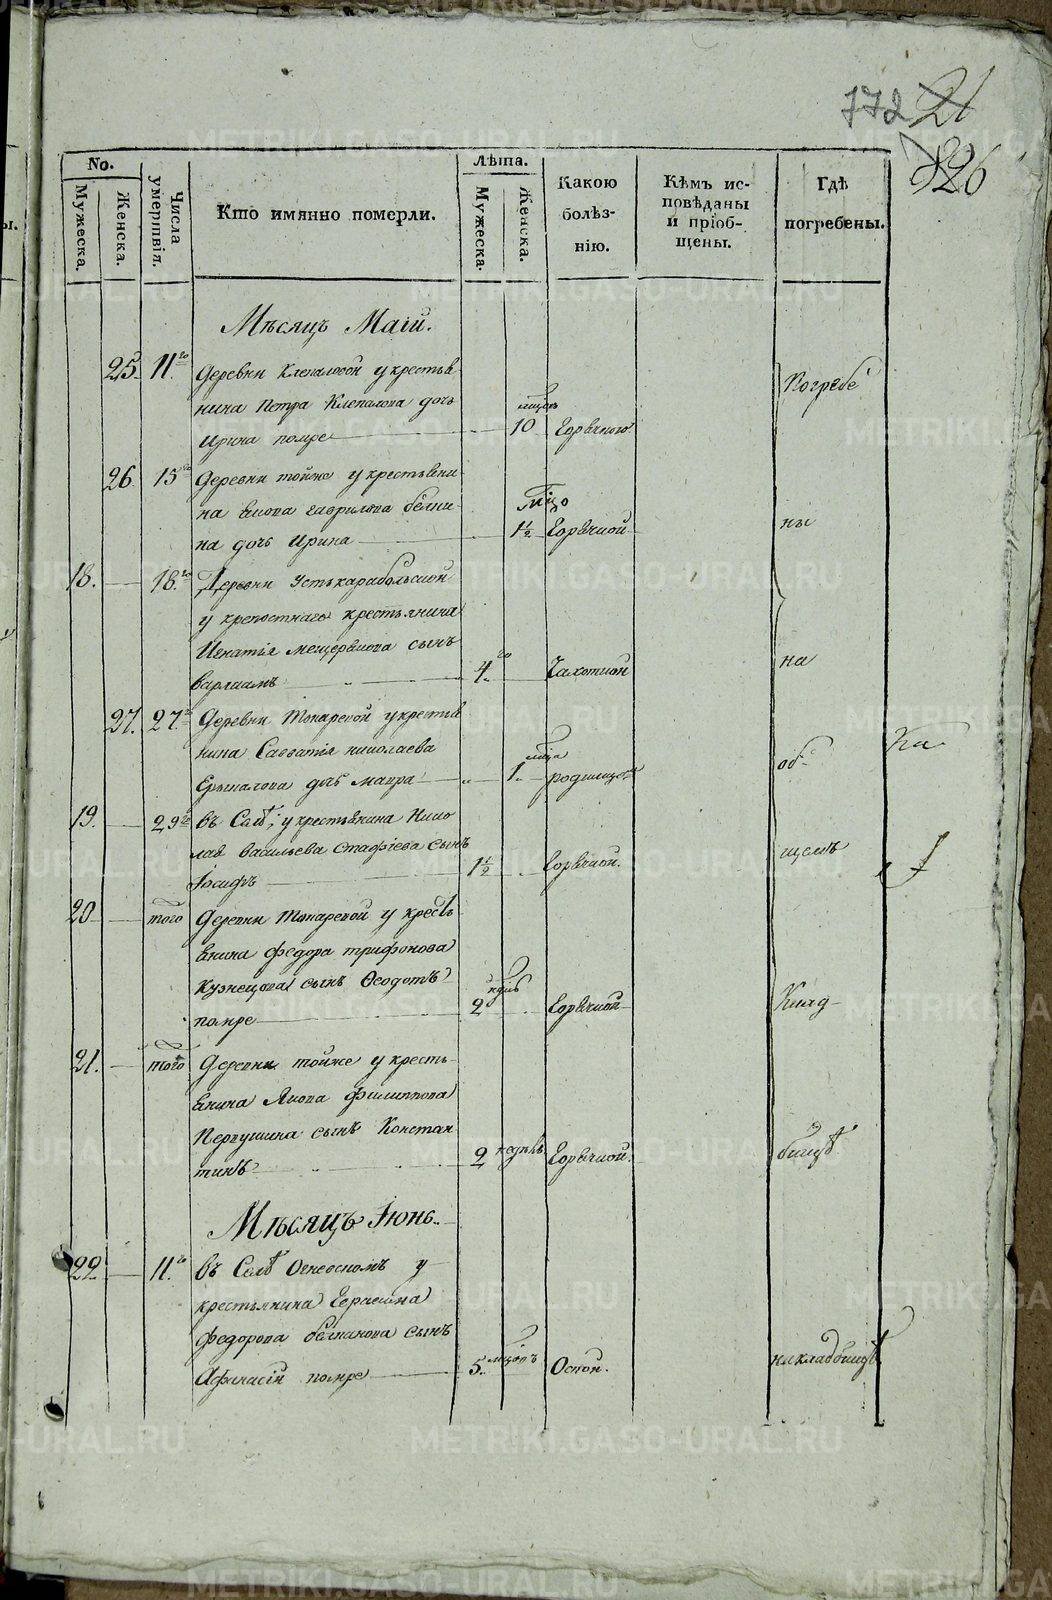 772 21
826
No.
Мужеска.
Женска.
Числа умертвія.
Кто имянно померли.
Лѣта.
Мужеска.
Женска.
Какою болѣз-
нію.
Кѣмъ ис-
повѣданы
и пріоб-
щены.
Гдѣ
погребены.
Мѣсяцъ Маій.
25 11го Деревни Клепаловой у крестья
нина Петра Клепалова дочь
Ирина помре 10 Горячкою Погребе
26 15го Деревни тойже у крестьяни
на Іакова гаврилова
на дочь Ирина 1½ Горячкой ны
18. 18го Деревни Устькарабольской
у крепостнаго крестьянина
Игнатія мещерякова сынъ
варлаамъ 4го Чахоткой на
27. 27го Деревни Токаревой у крестья
нина Савватія николаева
дочь мавра 1 родимцемъ об
19. 29го въ Селѣ, у крестьянина Нико
лая васильева Стафіева сынъ
Іосифъ 1½ Горячкой. щемъ
20 того Деревни Токаревой у кресть
янина федора трифонова
Кузнецова сынъ Ѳеодотъ
помре 2 Горячкой Клад
21. того Деревни тойже у кресть
янина Якова филиппова
Первушина сынъ Констан
тинъ 2 недѣль Горячкой. бищѣ
Мѣсяцъ Іюнь.
22 11го въ Селѣ Огневскомъ у
крестьянина Герасима
федорова сынъ
Афанасій помре 5 Оспой. на кладбищѣ
METRIKI.GASO-URAL.RU